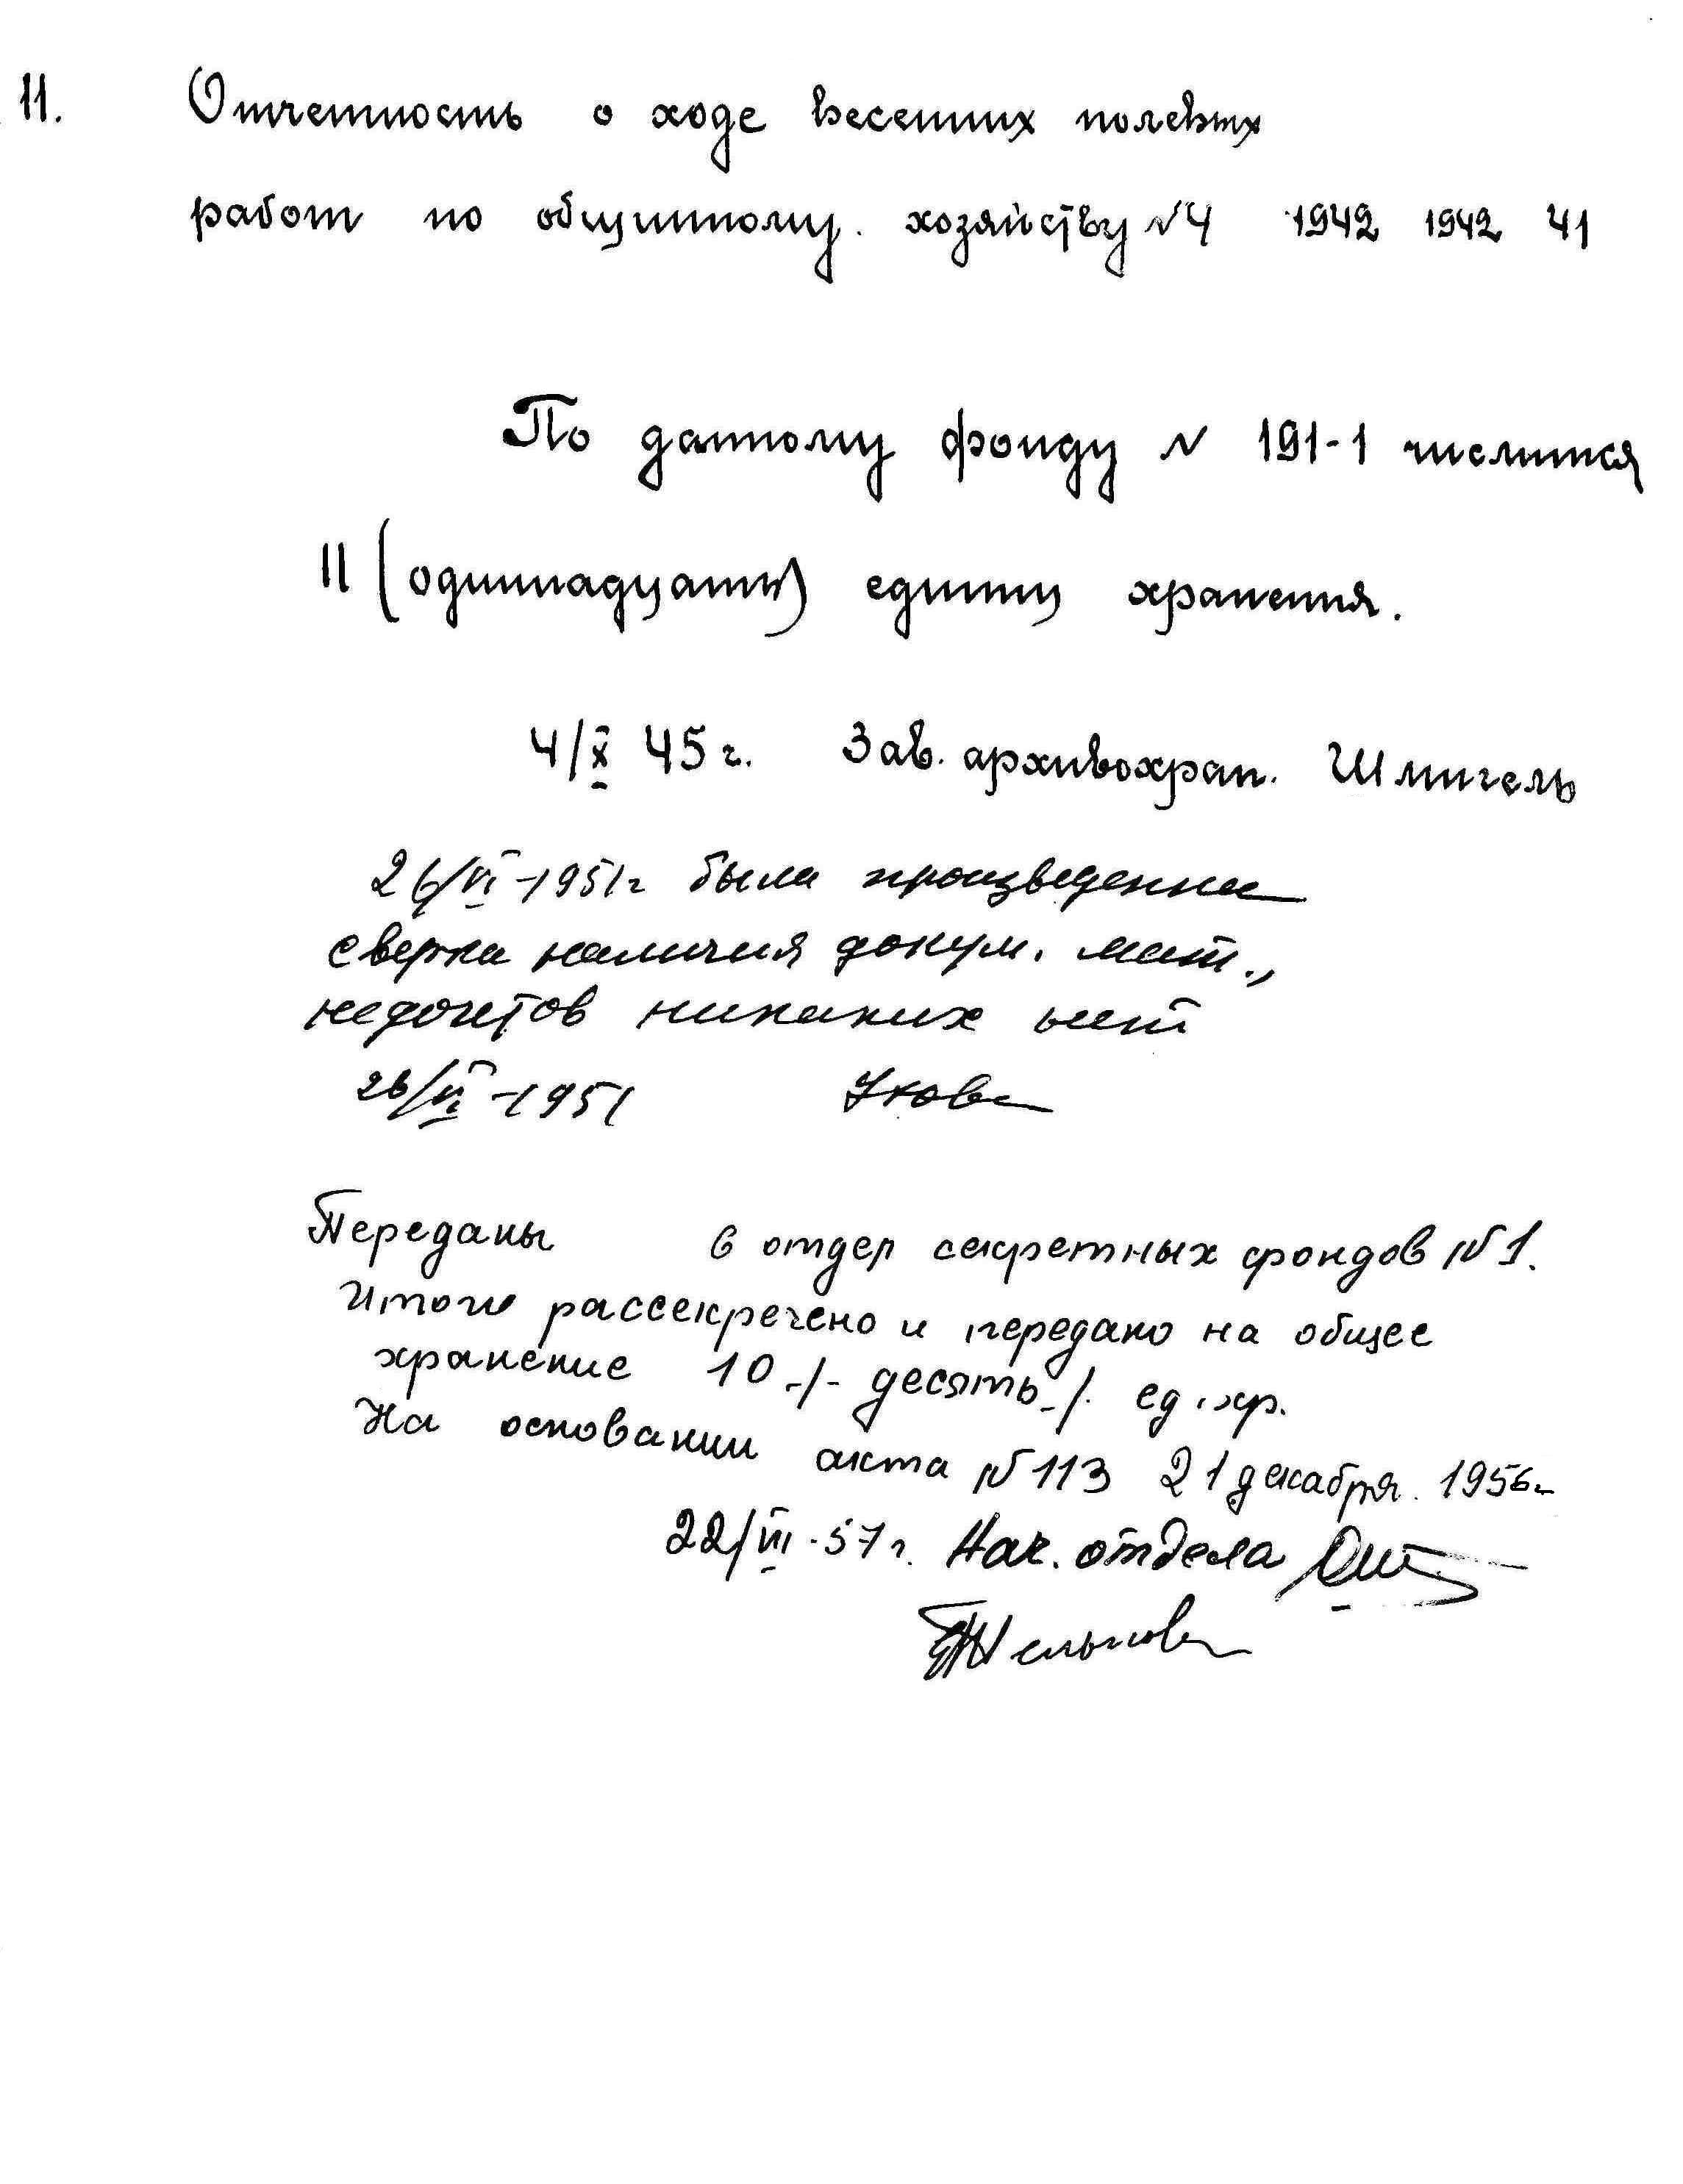 11. Отчетность о ходе весенних полевых
работ по общинному. хозяйству №4 1942 1942 41
По данному фонду № 191-1 числится
11 (одиннадцать) единиц хранения.
4/X 45 г. Зав. архивохран. Шмигель
26/VI-1951г была произведенна
сверка наличия докум. мат.,
недочетов никаких нет
26/VI-1951
Переданы в отдел секретных фондов №1.
Итого рассекречено и передано на общее
хранение 10 -/- десять -/. ед. хр.
На основании акта №113 21 декабря. 1956г
22/VII.57г. Нач. отдела